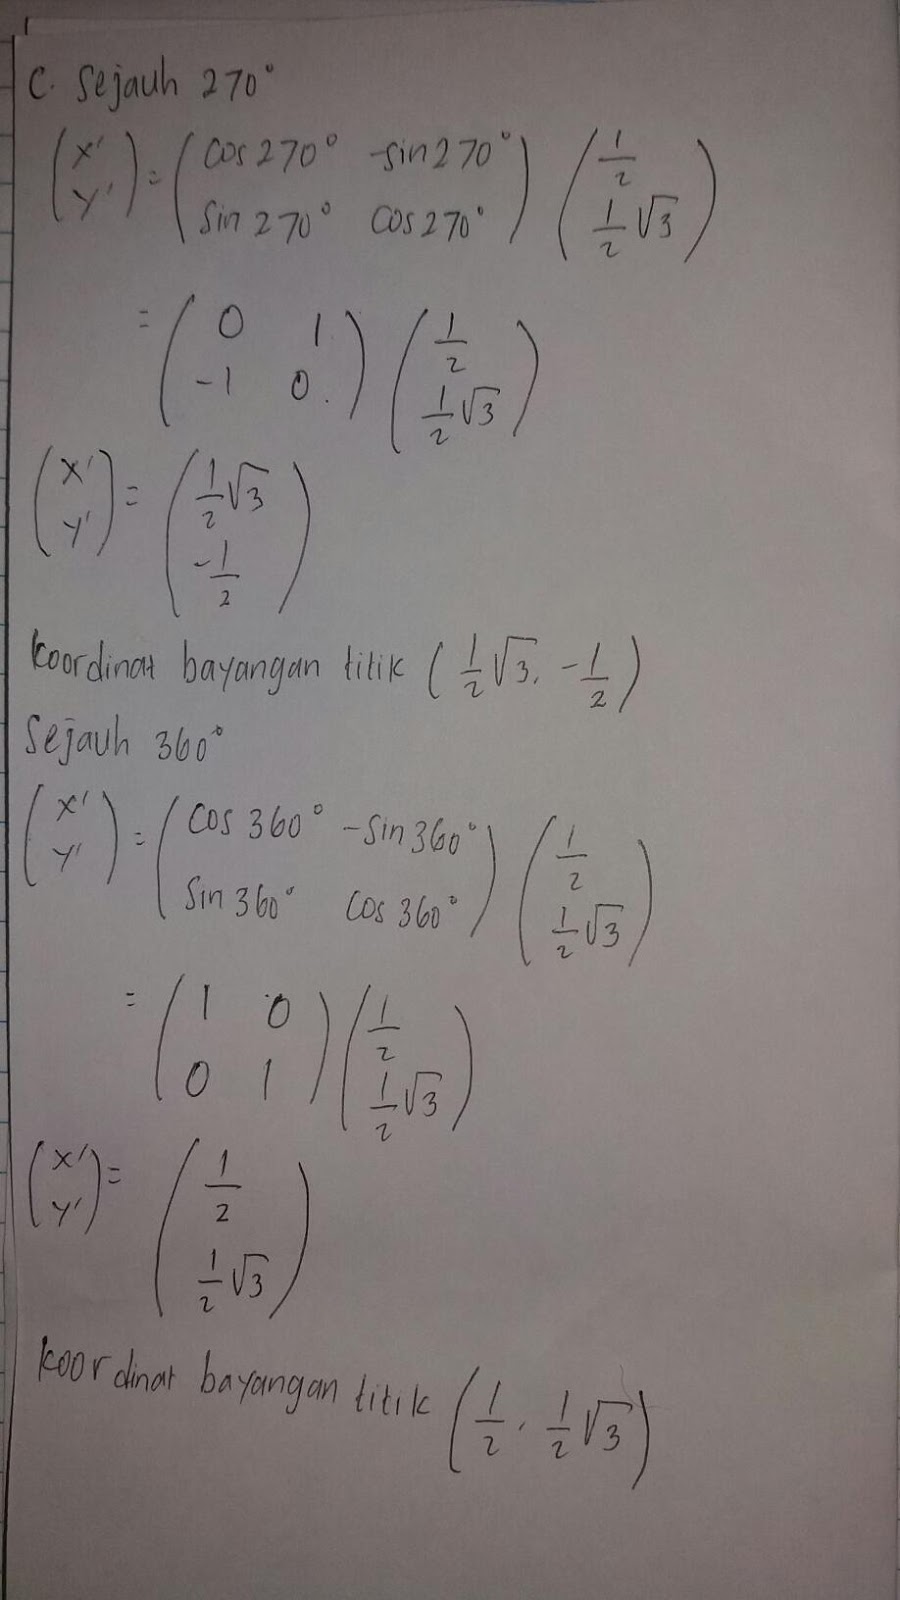 C. Sejauh 270°
(x' y') = (cos 270° -sin 270° sin 270° cos 270°) (1/2 1/2√3)
= (0 1 -1 0) (1/2 1/2√3)
(x' y') = (1/2√3 -1/2)
Koordinat bayangan titik (1/2√3, -1/2)
Sejauh 360°
(x' y') = (cos 360° -sin 360° sin 360° cos 360°) (1/2 1/2√3)
= (1 0 0 1) (1/2 1/2√3)
(x' y') = (1/2 1/2√3)
Koordinat bayangan titik (1/2, 1/2√3)